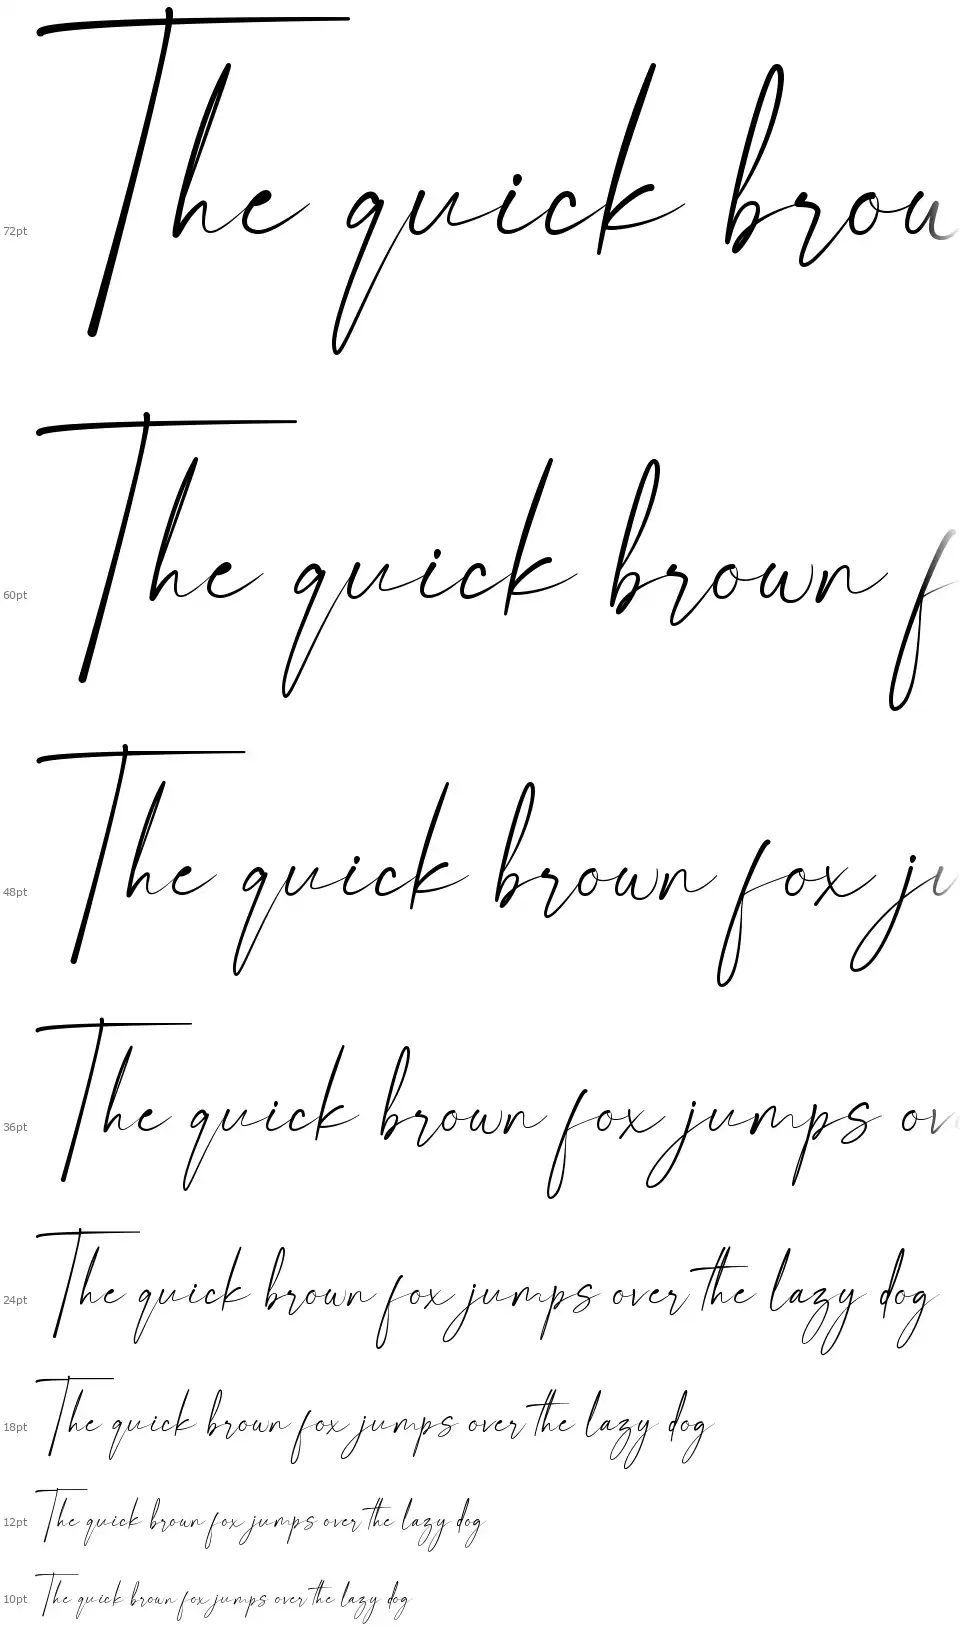 72pt The quick brou
60pt The quick brown f
48pt The quick brown fox ju
36pt The quick brown fox jumps ov
24pt The quick brown fox jumps over the lazy dog
18pt The quick brown fox jumps over the lazy dog
12pt The quick brown fox jumps over the lazy dog
10pt The quick brown fox jumps over the lazy dog